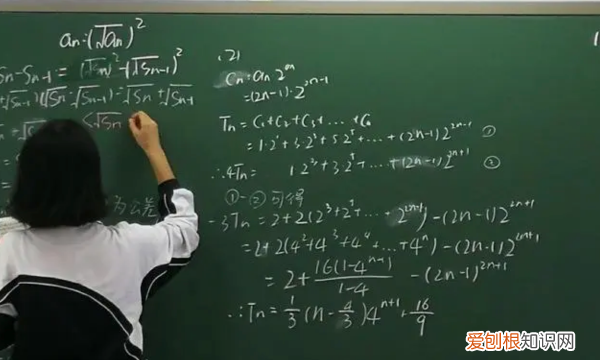 an=(√an)²
Sn-Sn-1 = (√Sn)²-(√Sn-1)²
+√Sn-1)(√Sn-√Sn-1)=√Sn+√Sn-1
(√Sn
为公差
(2)
Cn=an·2^2n-1
=(2n-1)·2^2n-1
Tn=C1+C2+C3+…+Cn
=1·2¹+3·2³+5·2⁵+…+(2n-1)2^2n-1 ①
∴4Tn= 1·2³+3·2⁵+…+(2n-1)2^2n+1 ②
①-②可得
-3Tn=2+2(2³+2⁵+…+2^2n-1)-(2n-1)2^2n+1
=2+2(4²+4³+4⁴+…+4ⁿ)-(2n-1)2^2n+1
=2+16(1-4^n-1)/1-4-(2n-1)^2n+1
∴Tn=1/3(n-4/3)4^n+1+16/9
爱刨根知识网